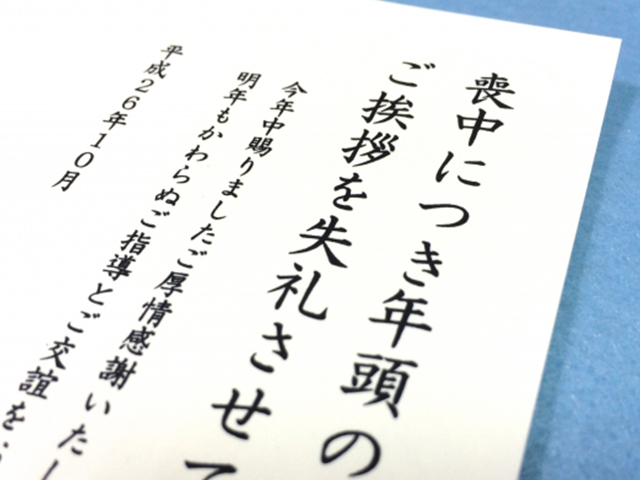 喪中につき年頭の
ご挨拶を失礼させて
今年中賜りましたご厚情感謝いたし
明年もかわらぬご指導とご交誼を
平成26年10月